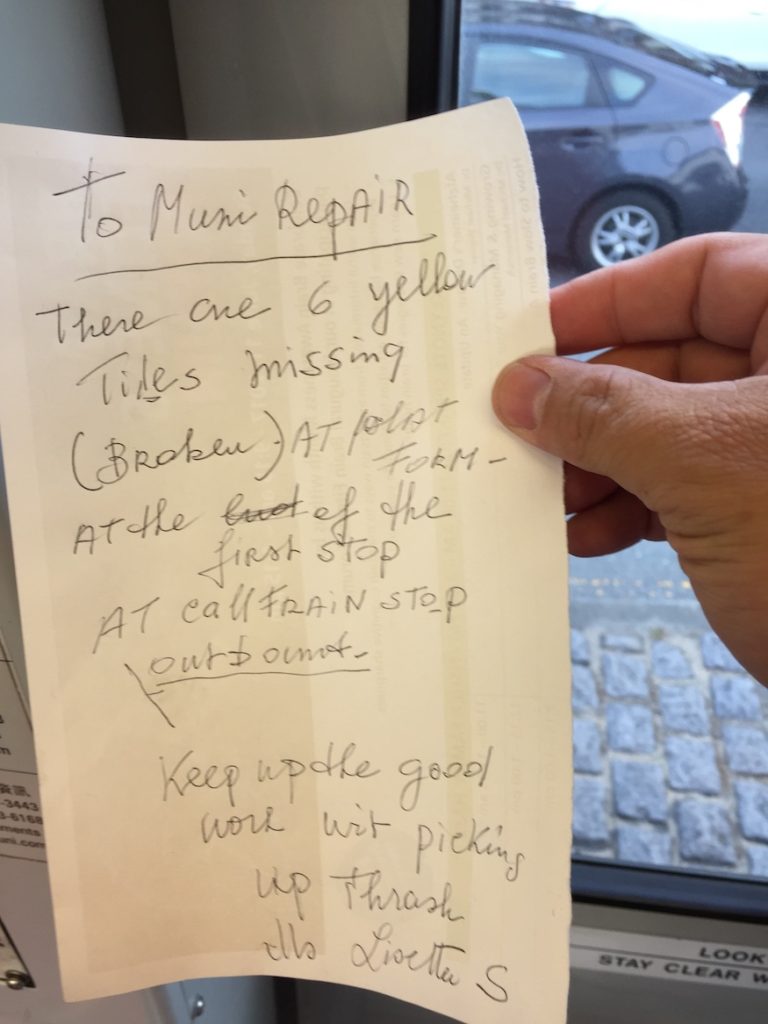 To Muni RepAIR
There are 6 yellow
Tiles missing
(Broken) AT plat
FORM-
AT the of the
first STOP
AT callTRAIN STOP
outbount-
Keep up the good
work wit picking
up Thrash
Ms Lisette S
-3443
3-6168
LOOK
STAY CLEAR W